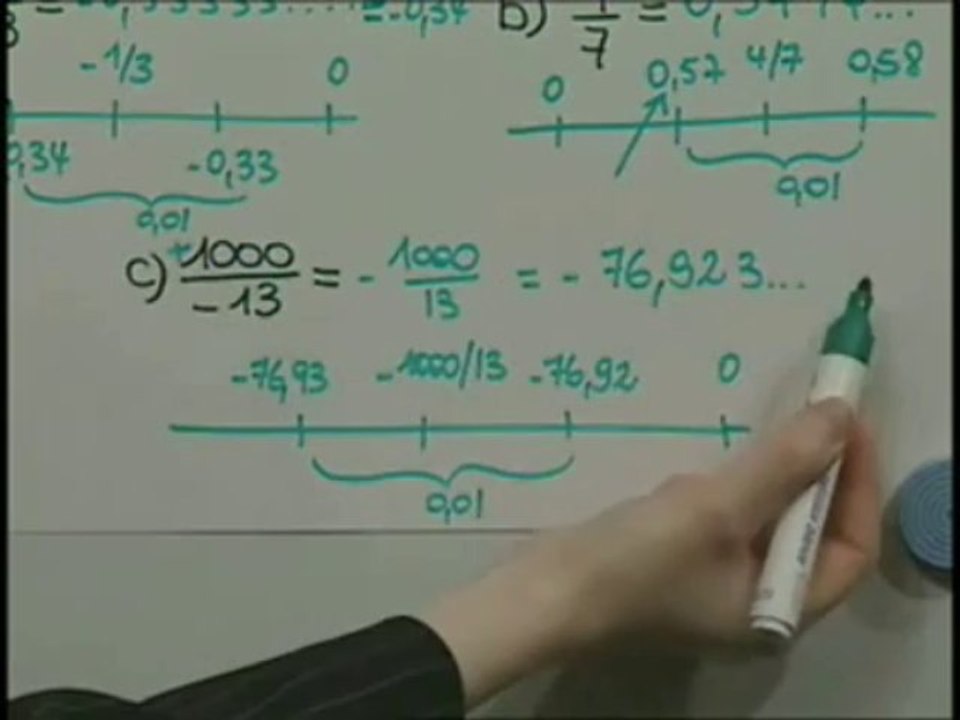 = -0,33333.... = -0,34
b) 7 = 0,
-1/3 0
0 0,57 4/7 0,58
0,34 -0,33
0,01
0,01
c) +1000/-13 = - 1000/13 = - 76,923...
-76,93 -1000/13 -76,92 0
0,01